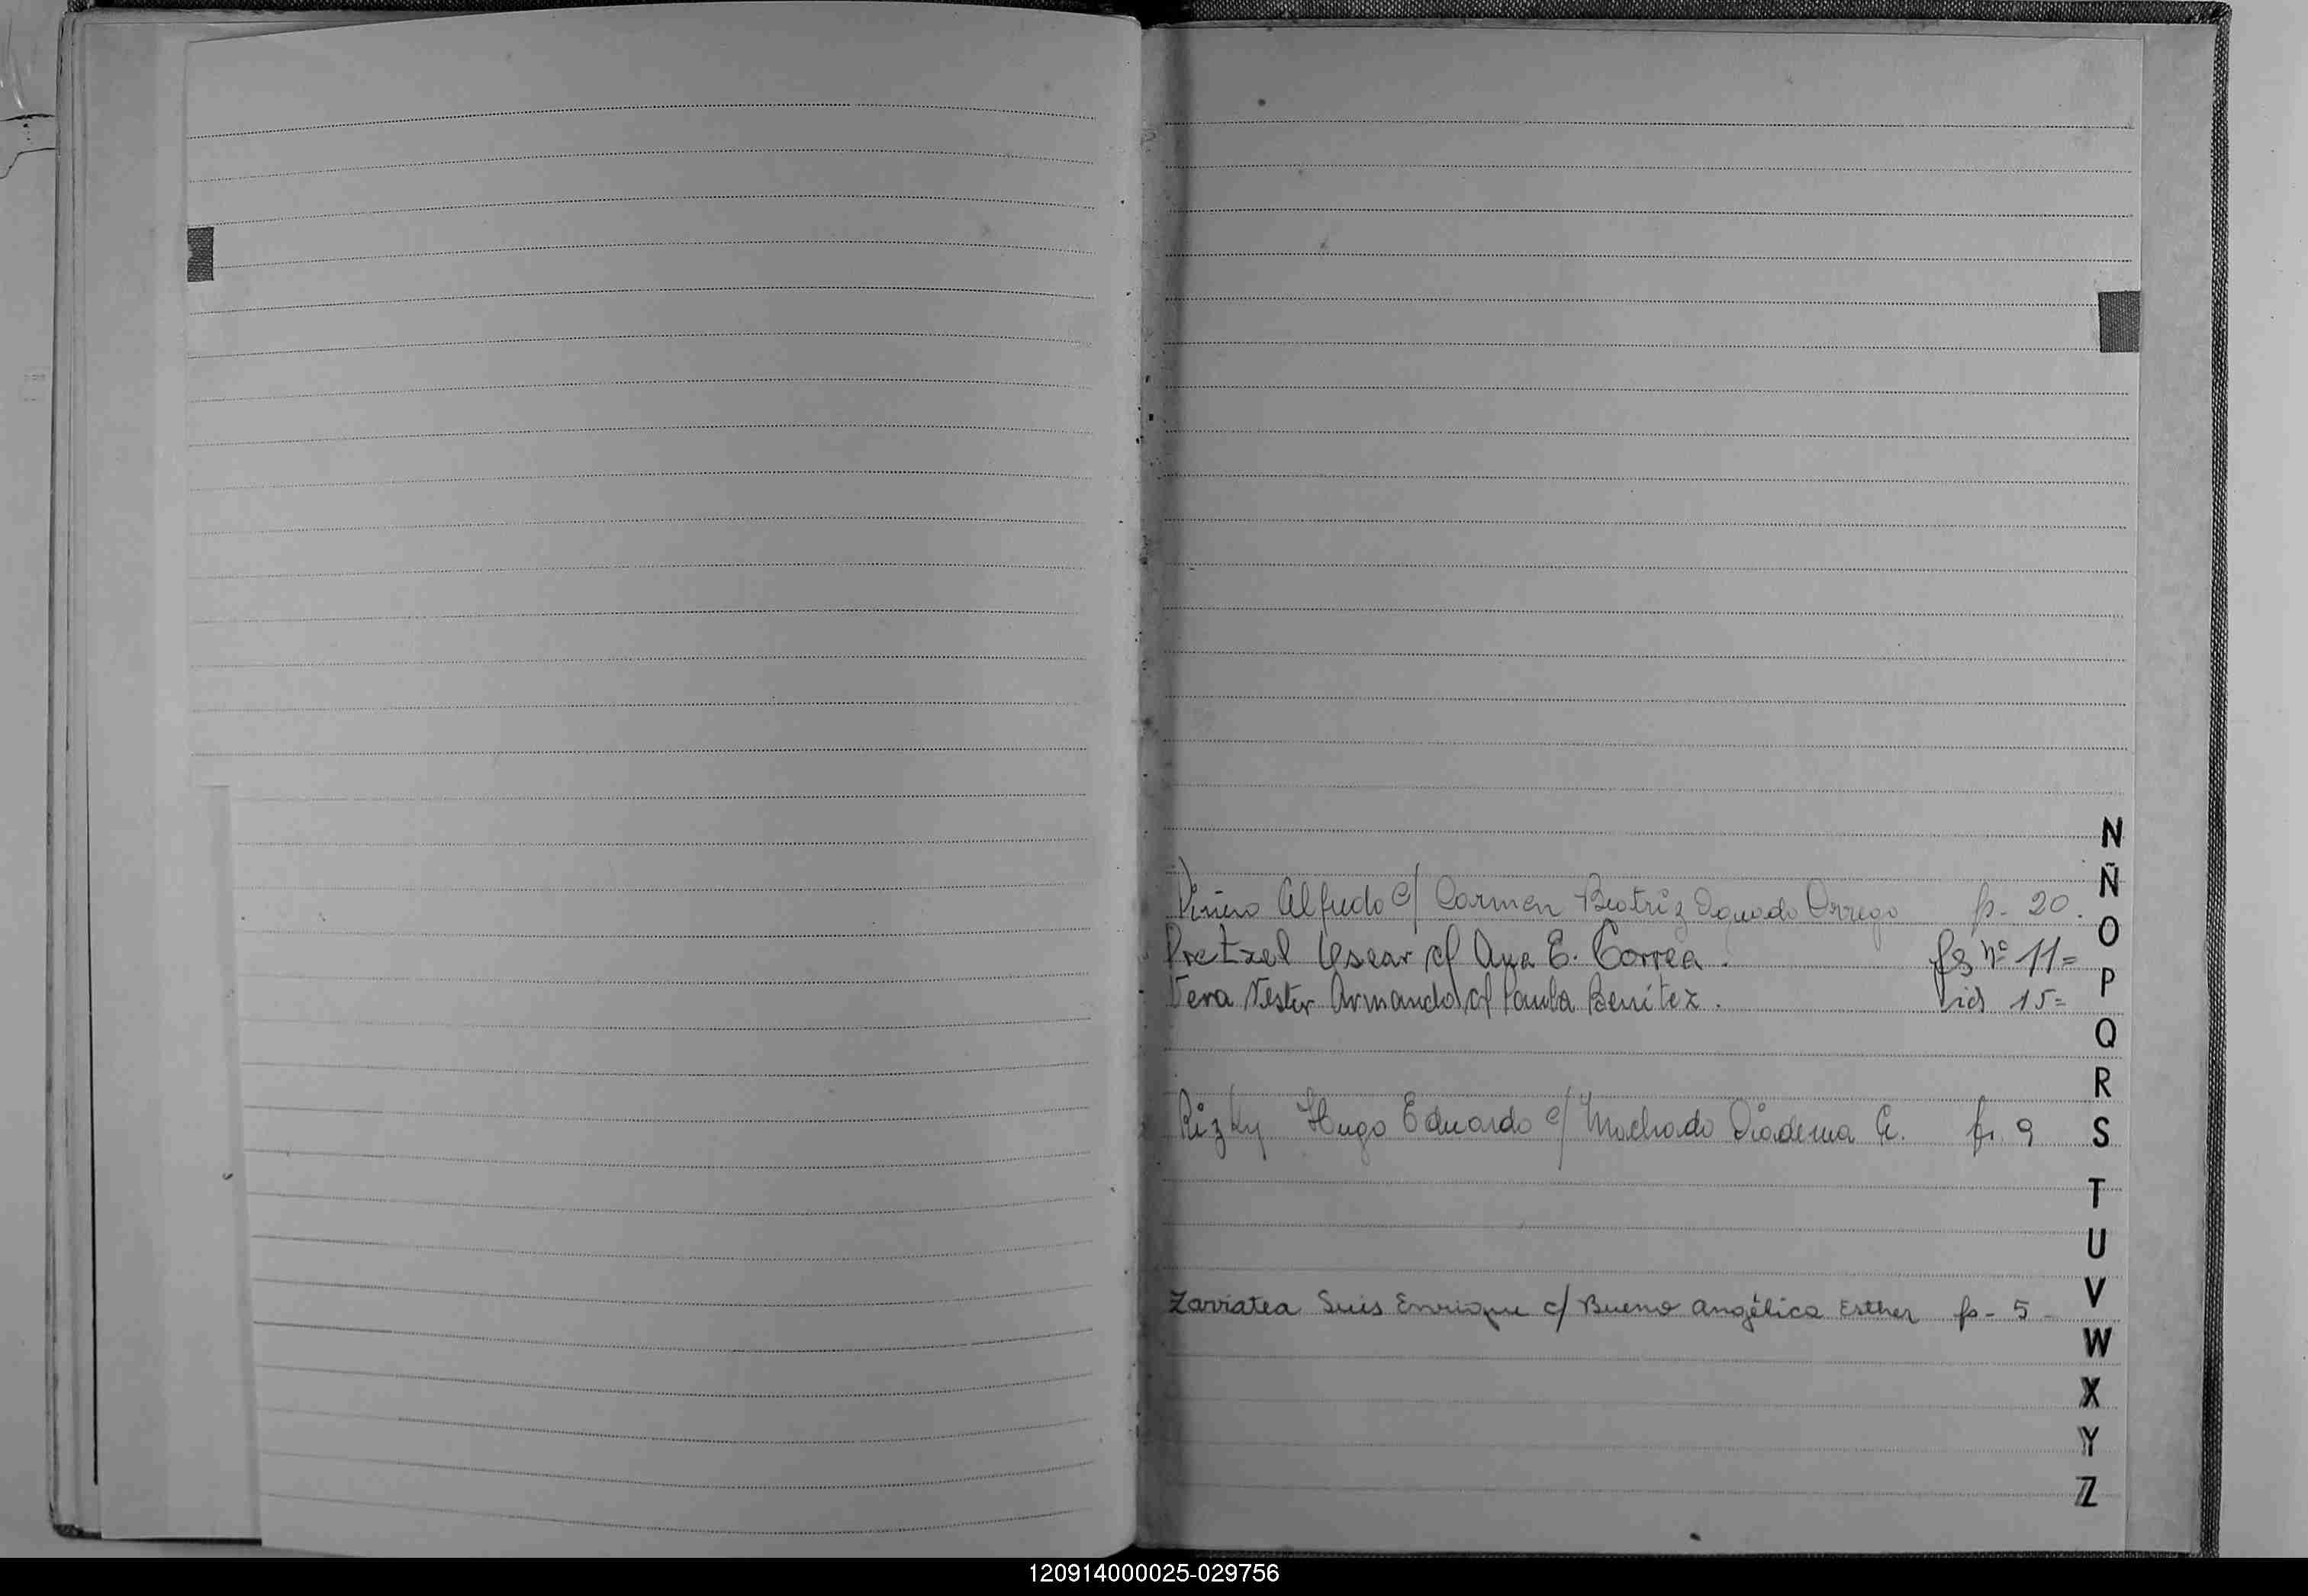 N
Ñ
Alfredo c/ Carmen Beatriz Orrego fs - 20.
O
Pretzel Oscar c/ Ana E. Correa. fs nº 11=
P
Vera Nestor Armando c/ Paula Benitez. 15=
Q
R
Rizky Hugo Eduardo c/ Machado Diadema fs. 9
S
T
U
V
Zarratea Luis Enrique c/ Bueno Angélica Esther fs - 5 -
W
X
Y
Z
120914000025-029756